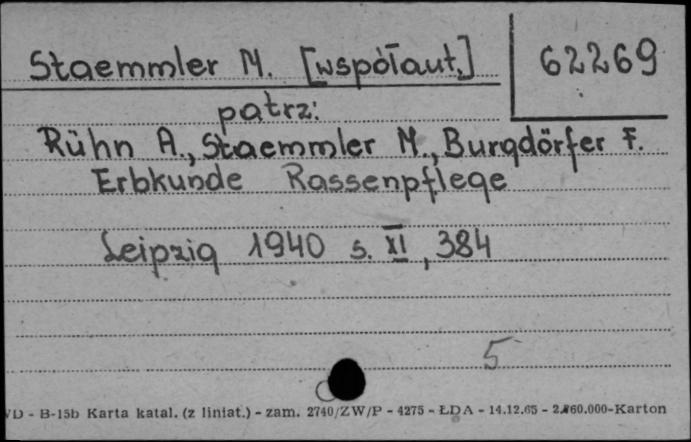 Staemmler M. [współaut.]
62269
patrz:
Rühn A., Staemmler M., Burgdörfer F.
Erbkunde Rassenpflege
Leipzig 1940 s. XI, 384
5
VD - B-15b Karta katal. (z liniat.) - zam. 2740/ZW/P - 4275 - ŁDA - 14.12.65 - 2.460.000-Karton